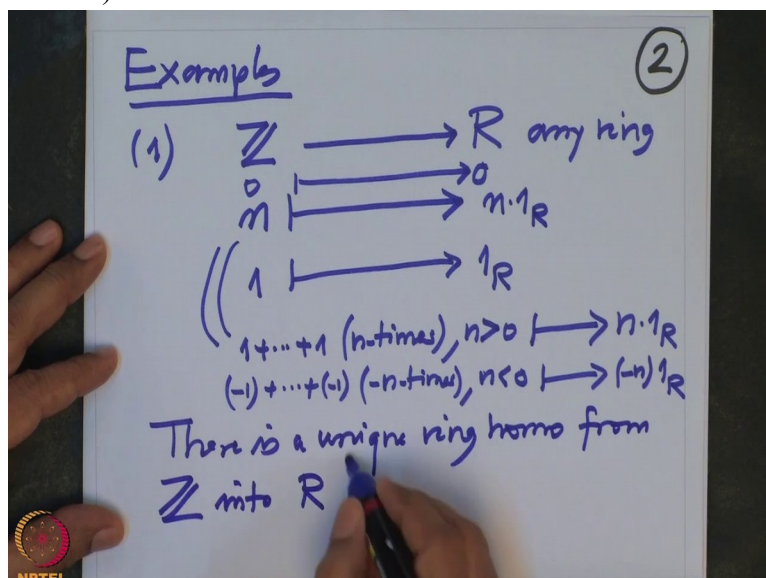 Examples
2
(1) ℤ ⟶ R any ring
0 ⟼ 0
n ⟼ n·1_R
1 ⟼ 1_R
1+···+1 (n-times), n>0 ⟼ n·1_R
(-1)+···+(-1) (-n-times), n<0 ⟼ (-n)1_R
There is a unique ring homo from
ℤ into R
NPTEL